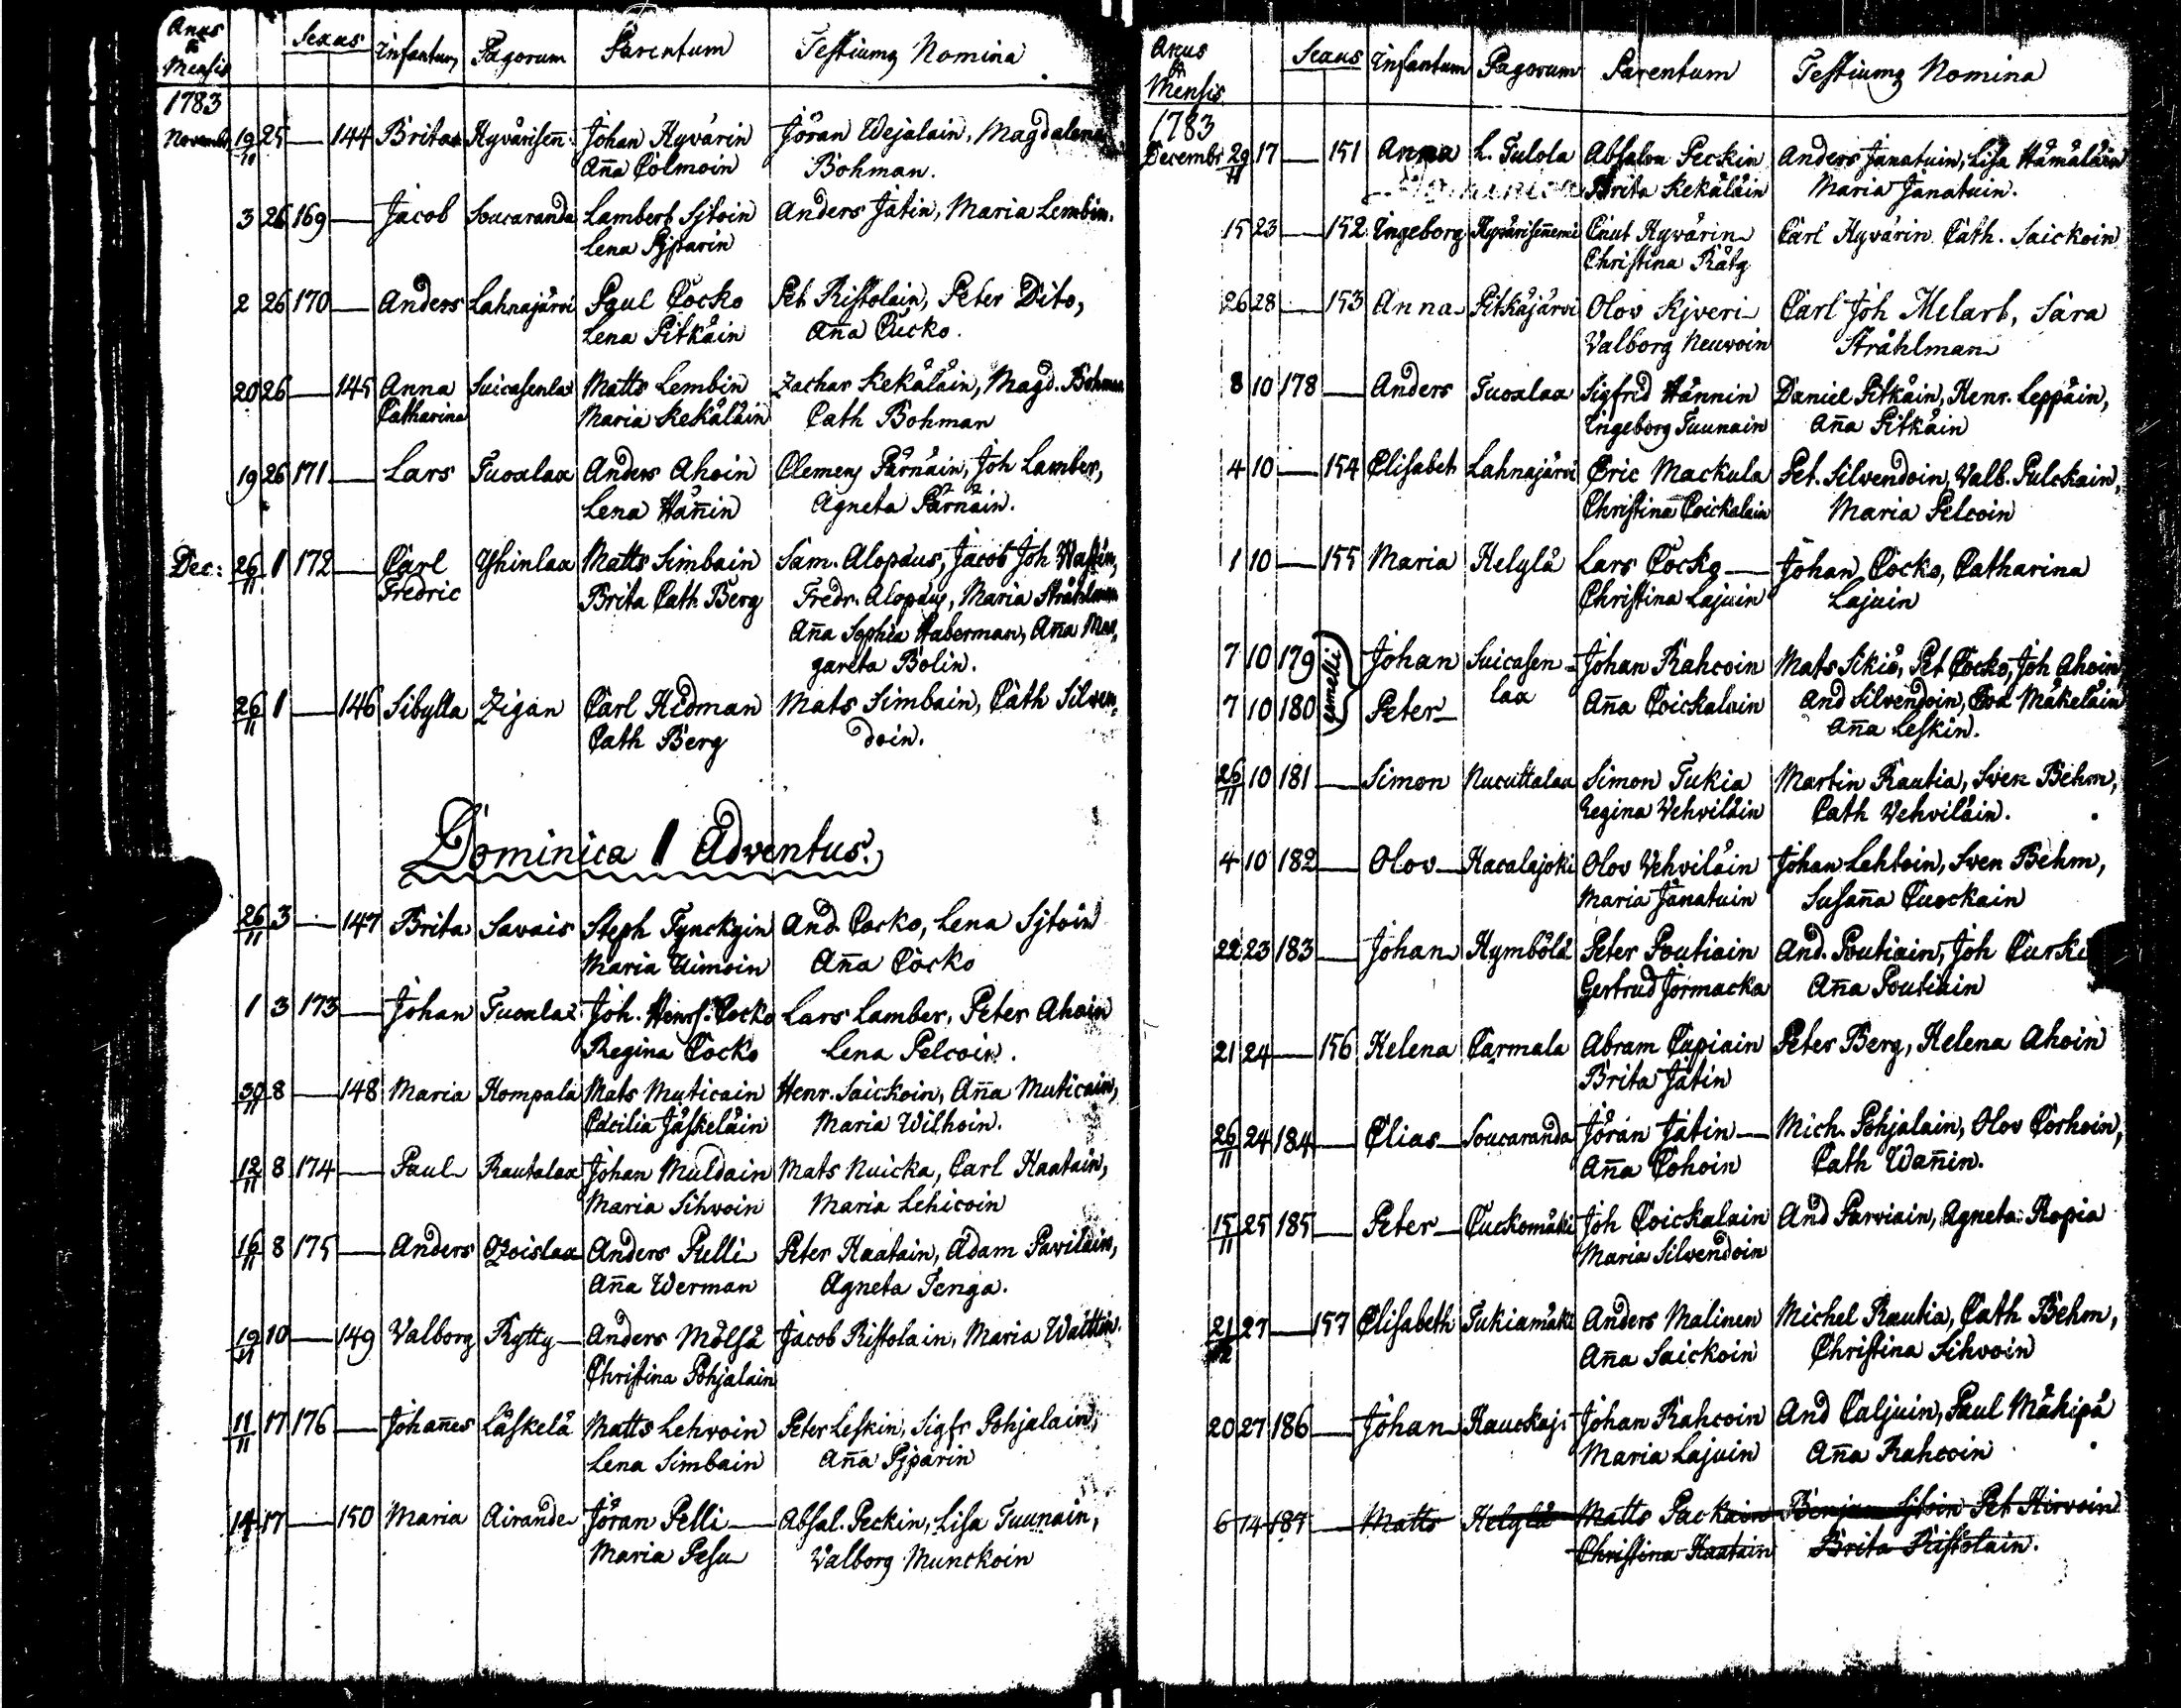 Anus & Mensis Sexus Infantum Pagorum Parentum Testiumq Nomina
1783
Novembr 19/11 25 — 144 Brita Hyvärisen: Johan Hyvärin Jöran Wejalain, Magdalena
Aña Colmoin Bohman.
3 26 169 — Jacob Soucaranda Lambert Sjtoin Anders Jätin, Maria Lembin.
Lena Pjparin
2 26 170 — Anders Lahnajärvi Paul Cocko Pet Ristolain, Peter Dito,
Lena Pitkäin Aña Cucko.
20 26 — 145 Anna Suicasenlax Matts Lembin Zachar Kekäläin, Magd. Bohman
Catharina Maria Kekäläin Cath Bohman
19 26 171 — Lars Tuoxlax Anders Ahoin Clemens Pärnäin, Joh Lamber,
Lena Häñin Agneta Pärnäin.
Dec: 26/11 1 172 — Carl Yhinlax Matts Simbain Sam. Alopæus, Jacob Joh
Fredric Brita Cath Berg Fredr. Alopæus, Maria Stråhlman
Aña Sophia Haberman, Aña Mar,
gareta Bolin.
26/11 1 — 146 Sibylla Zigän Carl Hidman Mats Simbain, Cath Silven,
Cath Berg doin.
Dominica 1 Adventus.
26/11 3 — 147 Brita Savais Steph Tynckyin And. Cocko, Lena Sjtoin
Maria Uimoin Aña Cocko
1 3 173 — Johan Tuoxlax Joh. Henrs. Cocko Lars Lamber, Peter Ahoin
Regina Cocko Lena Pelcoin.
30/11 8 — 148 Maria Kompala Mats Muticain Henr. Saickoin, Aña Muticain,
Cæcilia Jäskeläin Maria Wilhoin.
12/11 8 174 — Paul Rautalax Johan Muldain Mats Nuicka, Carl Kaatain,
Maria Sihvoin Maria Lehicoin
16/11 8 175 — Anders Ojoislax Anders Pelli Peter Kaatain, Adam Paviläin,
Aña Werman Agneta Tenga.
19/11 10 — 149 Valborg Rytty Anders Mölsä Jacob Ristolain, Maria Wattin.
Christina Pohjalain
11/11 17 176 — Johañes Läskelä Matts Lehvoin Peter Leskin, Sigfr Pohjalain,
Lena Simbain Aña Pjparin
14 17 — 150 Maria Airande Jöran Pelli — Absal. Peckin, Lisa Tuunain,
Maria Pesu Valborg Munckoin
Anus & Mensis Sexus Infantum Pagorum Parentum Testiumq Nomina
1783
Decembr 29/11 17 — 151 Anna L. Tulola Absalon Peckin Anders Jänatuin, Lisa Hämäläin
Brita Kekäläin Maria Jänatuin.
15 23 — 152 Ingeborg Hyväriseñemi Cnut Hyvärin Carl Hyvärin Cath. Saickoin
Christina Rätg
26 28 — 153 Anna Pitkäjärvi Olov Kjveri Carl Joh Melart, Sara
Valborg Neuvoin Stråhlman
8 10 178 — Anders Tuoxlax Sigfrid Hännin Daniel Pitkäin, Henr. Leppäin,
Ingeborg Tuunain Aña Pitkäin
4 10 — 154 Elisabet Lahnajärvi Eric Mackula Pet. Silvendoin, Valb. Pulckain,
Christina Coickalain Maria Pelcoin
1 10 — 155 Maria Helylä Lars Cocko — Johan Cocko, Catharina
Christina Lajuin Lajuin
7 10 179 gemelli Johan Suicasen= Johan Rahcoin Mats Sikiö, Pet Cocko, Joh Ahoin
7 10 180 Peter lax Aña Coickalain And Silvendoin, Eva Mäkeläin
Aña Leskin.
26/11 10 181 — Simon Nucuttalax Simon Tukia Martin Rautia, Sven Behm,
Regina Vehviläin Cath Vehviläin.
4 10 182 — Olov Kacalajoki Olov Vehviläin Johan Lehtoin, Sven Behm,
Maria Jänatuin Susaña Cuockain
22 23 183 — Johan Hymbölä Peter Poutiain And. Poutiain, Joh Curki
Gertrud Jormacka Aña Poutiain
21 24 — 156 Helena Carmala Abram Cupiain Peter Berg, Helena Ahoin
Brita Jätin
26/11 24 184 — Elias Soucaranda Jöran Jätin — Mich. Pohjalain, Olov Corhoin,
Aña Cohoin Cath Wañin.
15/11 25 185 — Peter Cuckomäki Joh Coickalain And Parviain, Agneta Kopia
Maria Silvendoin
21/12 27 — 157 Elisabeth Tukiamäki Anders Malinen Michel Rautia, Cath Behm,
Aña Saickoin Christina Sihvoin
20 27 186 — Johan Hauckaj: Johan Rahcoin And Caljuin, Paul Mähipä
Maria Lajuin Aña Rahcoin
6 14 187 — Matts Helylä Matts Packain Benjam Sjtoin Pet Hirvoin
Christina Kaatain Brita Ristolain.